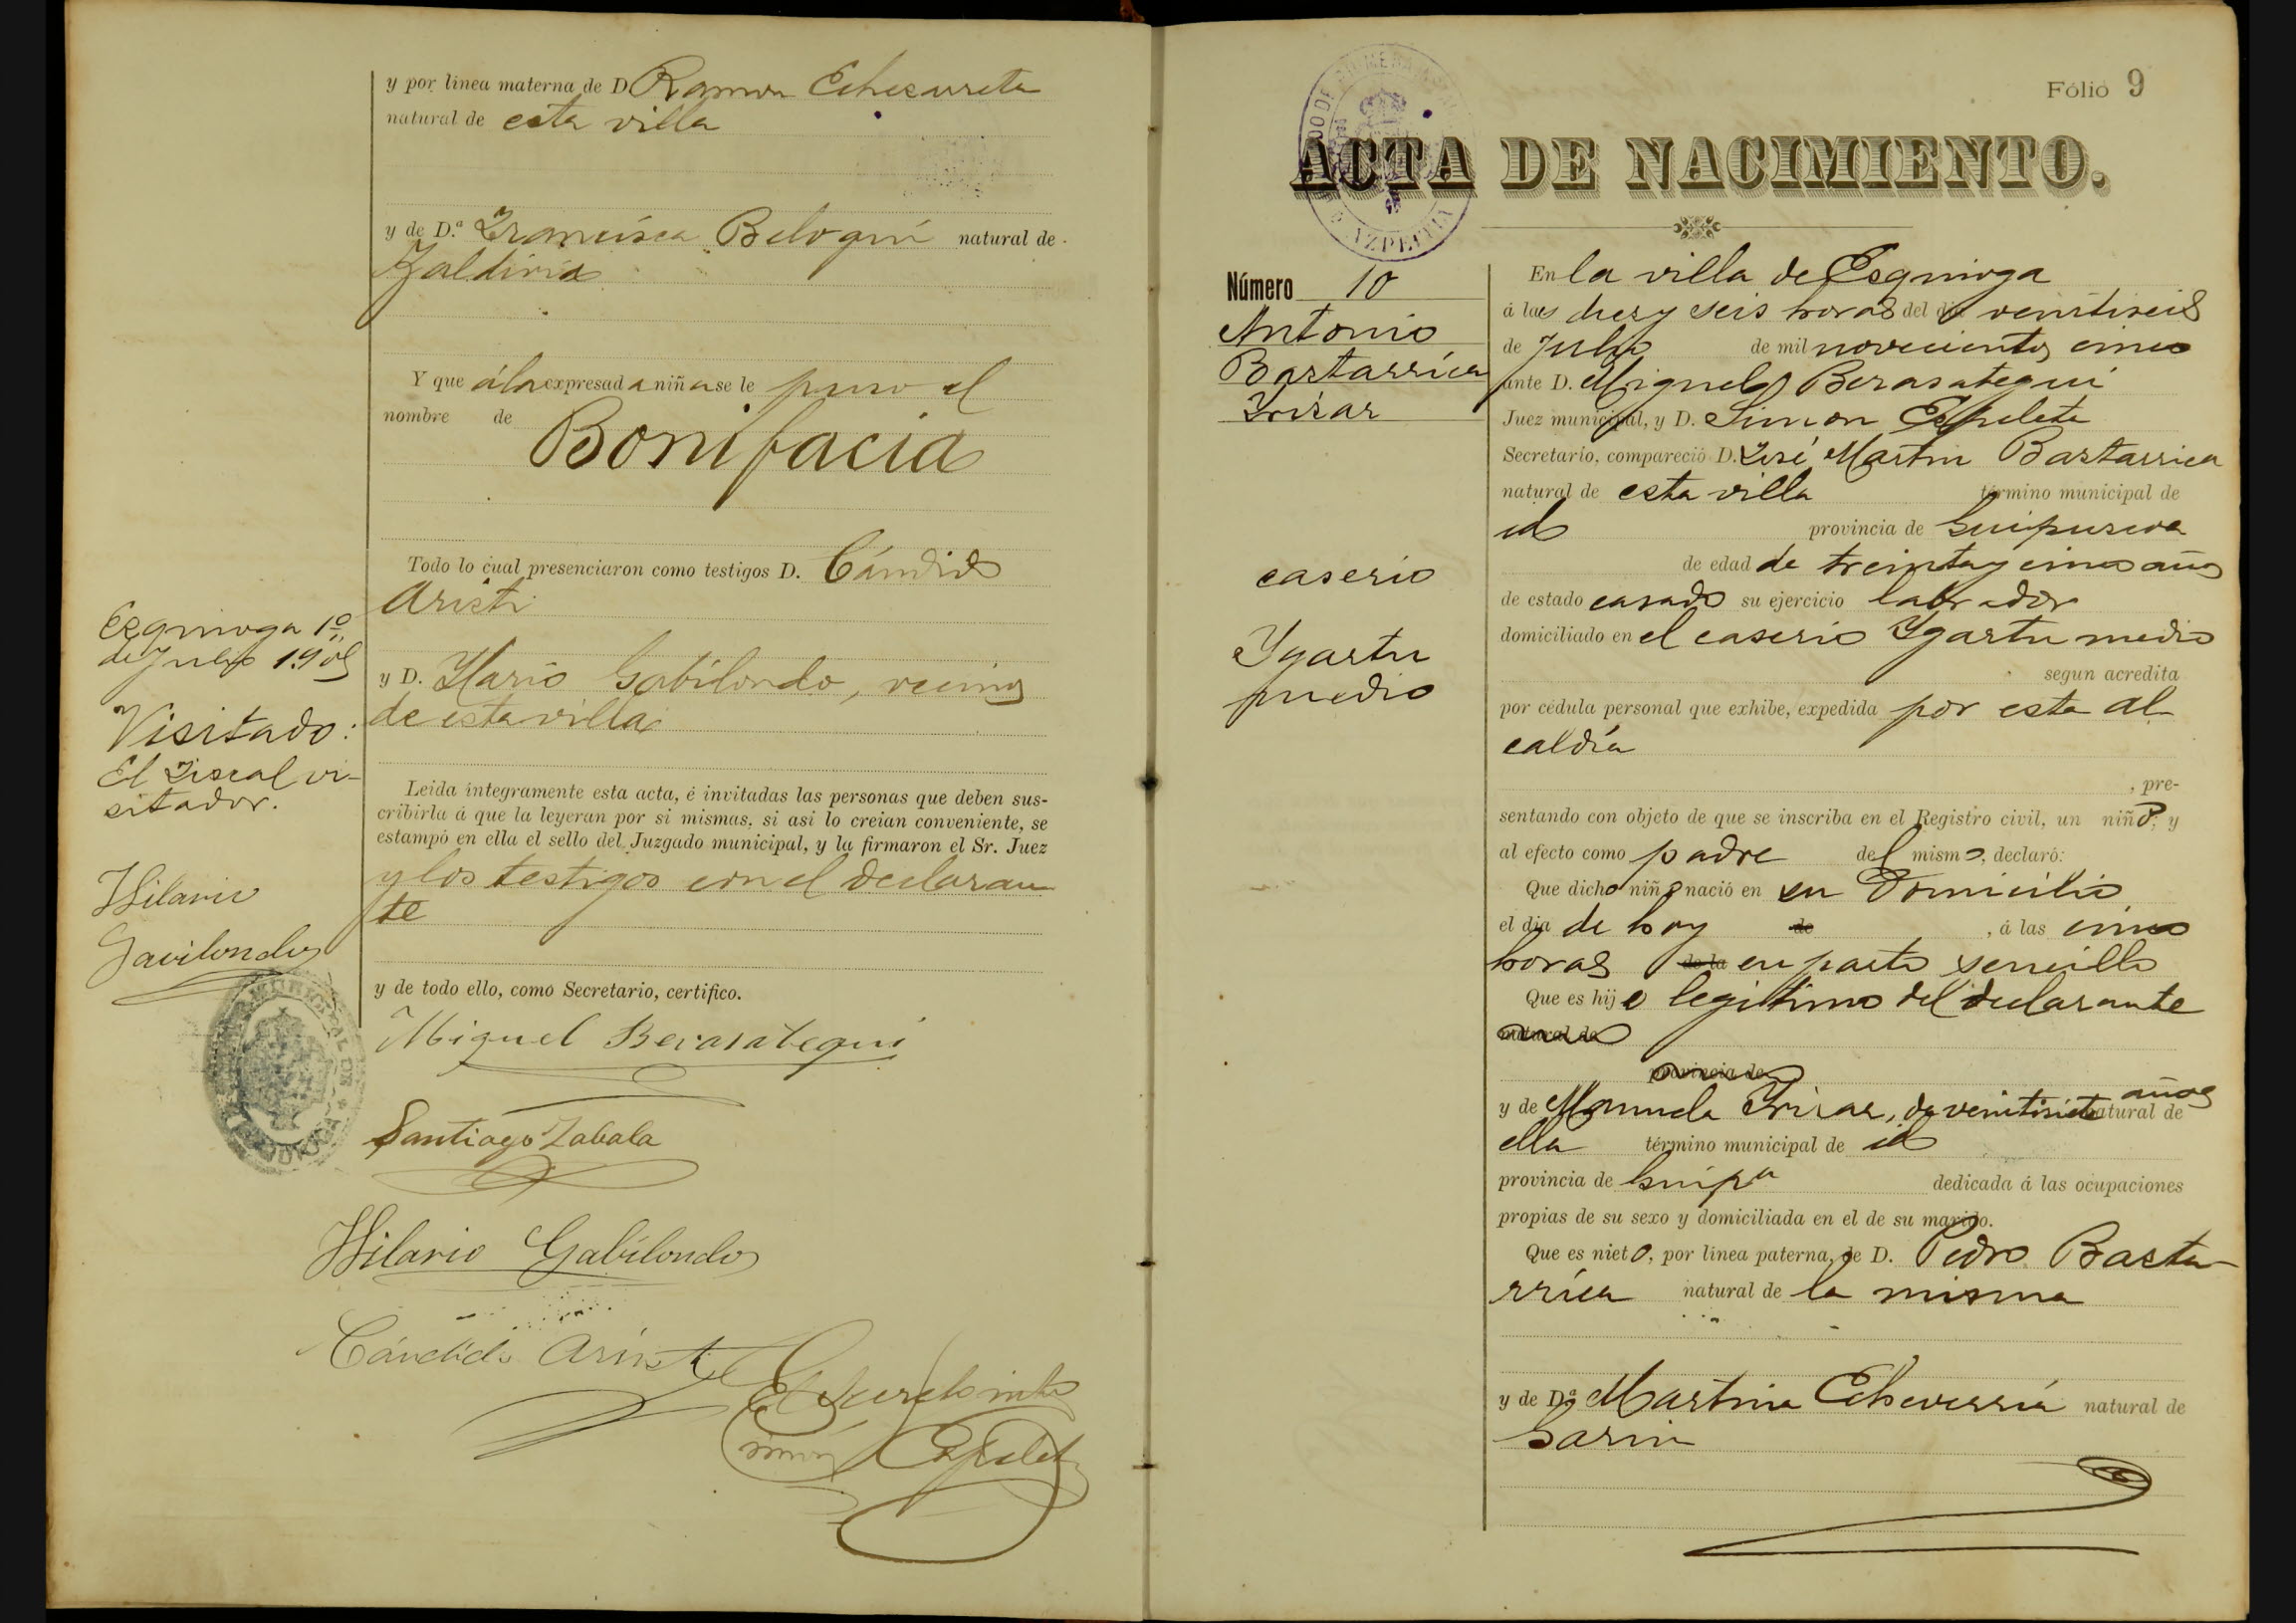 y por línea materna de D Ramon Echezarreta
natural de esta villa
y de D.ª Francisca Beloqui natural de
Zaldivia
Y que á la expresada niña se le puso el
nombre de
Bonifacia
Todo lo cual presenciaron como testigos D. Cándido
Aristi
y D. Ylario Gabilondo, vecinos
de esta villa
Leida íntegramente esta acta, é invitadas las personas que deben sus-
cribirla á que la leyeran por si mismas, si asi lo creian conveniente, se
estampó en ella el sello del Juzgado municipal, y la firmaron el Sr. Juez
y los testigos con el declaran
te
y de todo ello, como Secretario, certifico.
Miguel Berasategui
Santiago Zabala
Hilario Gabilondo
Cándido Aristi
El Secretario
Simon Espeleta
Ezquioga 1º
de Julio 1905
Visitado:
El Fiscal vi-
sitador.
Hilario
Gavilondo
Fólio 9
ACTA DE NACIMIENTO.
AZPEITIA
Número 10
Antonio
Bastarrica
Irizar
caserio
Ygartu
medio
En la villa de Esquioga
á las diez y seis horas del dia veintiseis
de Julio de mil novecientos cinco
ante D. Miguel Berasategui
Juez municipal, y D. Simon Espeleta
Secretario, compareció D. José Martin Bastarrica
natural de esta villa término municipal de
id provincia de Guipuzcoa
de edad de treinta y cinco años
de estado casado su ejercicio labrador
domiciliado en el caserio Ygartu medio
segun acredita
por cédula personal que exhibe, expedida por esta al
caldía
, pre-
sentando con objeto de que se inscriba en el Registro civil, un niño; y
al efecto como padre del mismo, declaró:
Que dicho niño nació en su domicilio
el dia de hoy de , á las cinco
horas de la en parto sencillo
Que es hijo legítimo del declarante
natural de
provincia de
y de Manuela Irizar, de veintisiete años natural de
ella término municipal de id
provincia de Guipª dedicada á las ocupaciones
propias de su sexo y domiciliada en el de su marido.
Que es nieto, por línea paterna, de D. Pedro Basta-
rrica natural de la misma
y de Dª Martina Echeverría natural de
Garin